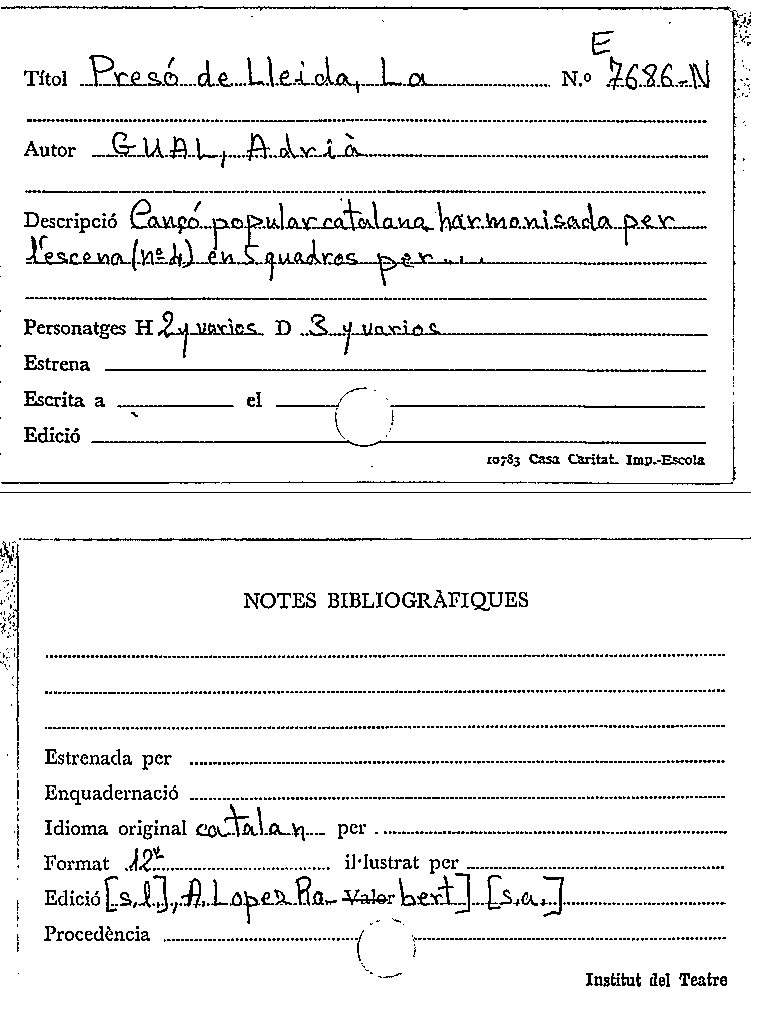 E
Títol Presó de Lleida, La N.º 7686-N
Autor GUAL, Adrià
Descripció Cançó popular catalana harmonisada per
l'escena (nº 4) en 5 quadros per...
Personatges H 2 y varios D 3 y varios
Estrena
Escrita a el
Edició
10783 Casa Caritat. Imp.-Escola
NOTES BIBLIOGRÀFIQUES
Estrenada per
Enquadernació
Idioma original catalan per
Format 12º il·lustrat per
Edició [s.l.], A. Lopez Ro- Valor bert] [s.a.]
Procedència
Institut del Teatre